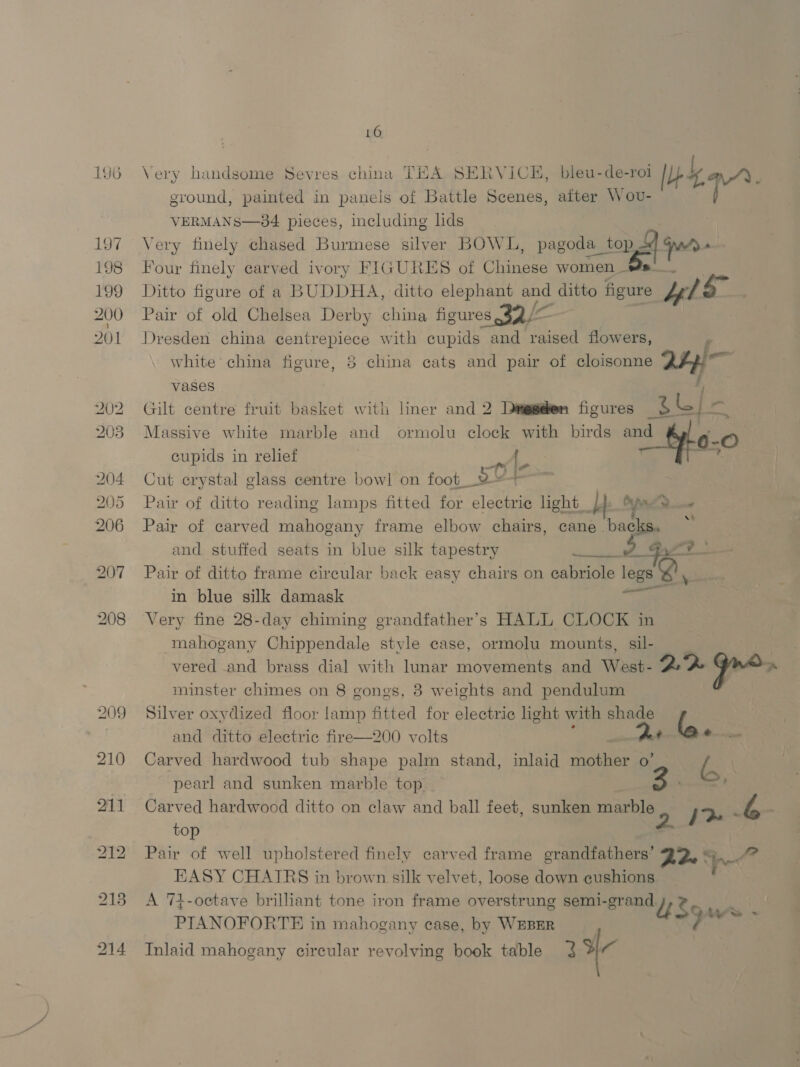 16
196 Very handsome Sevres china TEA SERVICE, bleu-de-roi
ground, painted in panels of Battle Scenes, after Wou-
VERMANS—34 pieces, including lids
197 Very finely chased Burmese silver BOWL, pagoda top
198 Four finely carved ivory FIGURES of Chinese women
199 Ditto figure of a BUDDHA, ditto elephant and ditto figure
200 Pair of old Chelsea Derby china figures 32/-
201 Dresden china centrepiece with cupids and raised flowers,
white china figure, 3 china cats and pair of cloisonne
vases
202 Gilt centre fruit basket with liner and 2 Dresden figures
203 Massive white marble and ormolu clock with birds and
cupids in relief
204 Cut crystal glass centre bowl on foot
205 Pair of ditto reading lamps fitted for electric light
206 Pair of carved mahogany frame elbow chairs, cane backs,
and stuffed seats in blue silk tapestry
207 Pair of ditto frame circular back easy chairs on cabriole legs
in blue silk damask
208 Very fine 28-day chiming grandfather's HALL CLOCK in
mahogany Chippendale style case, ormolu mounts, sil-
vered and brass dial with lunar movements and West- 22 gns
minster chimes on 8 gongs, 3 weights and pendulum
209 Silver oxydized floor lamp fitted for electric light with shade
and ditto electric fire—200 volts
210 Carved hardwood tub shape palm stand, inlaid mother o'
pearl and sunken marble top
211 Carved hardwood ditto on claw and ball feet, sunken marble
top 2 12. 6
212 Pair of well upholstered finely carved frame grandfathers' 22
EASY CHAIRS in brown silk velvet, loose down cushions
213 A 7¼-octave brilliant tone iron frame overstrung semi-grand
PIANOFORTE in mahogany case, by WEBER
214 Inlaid mahogany circular revolving book table